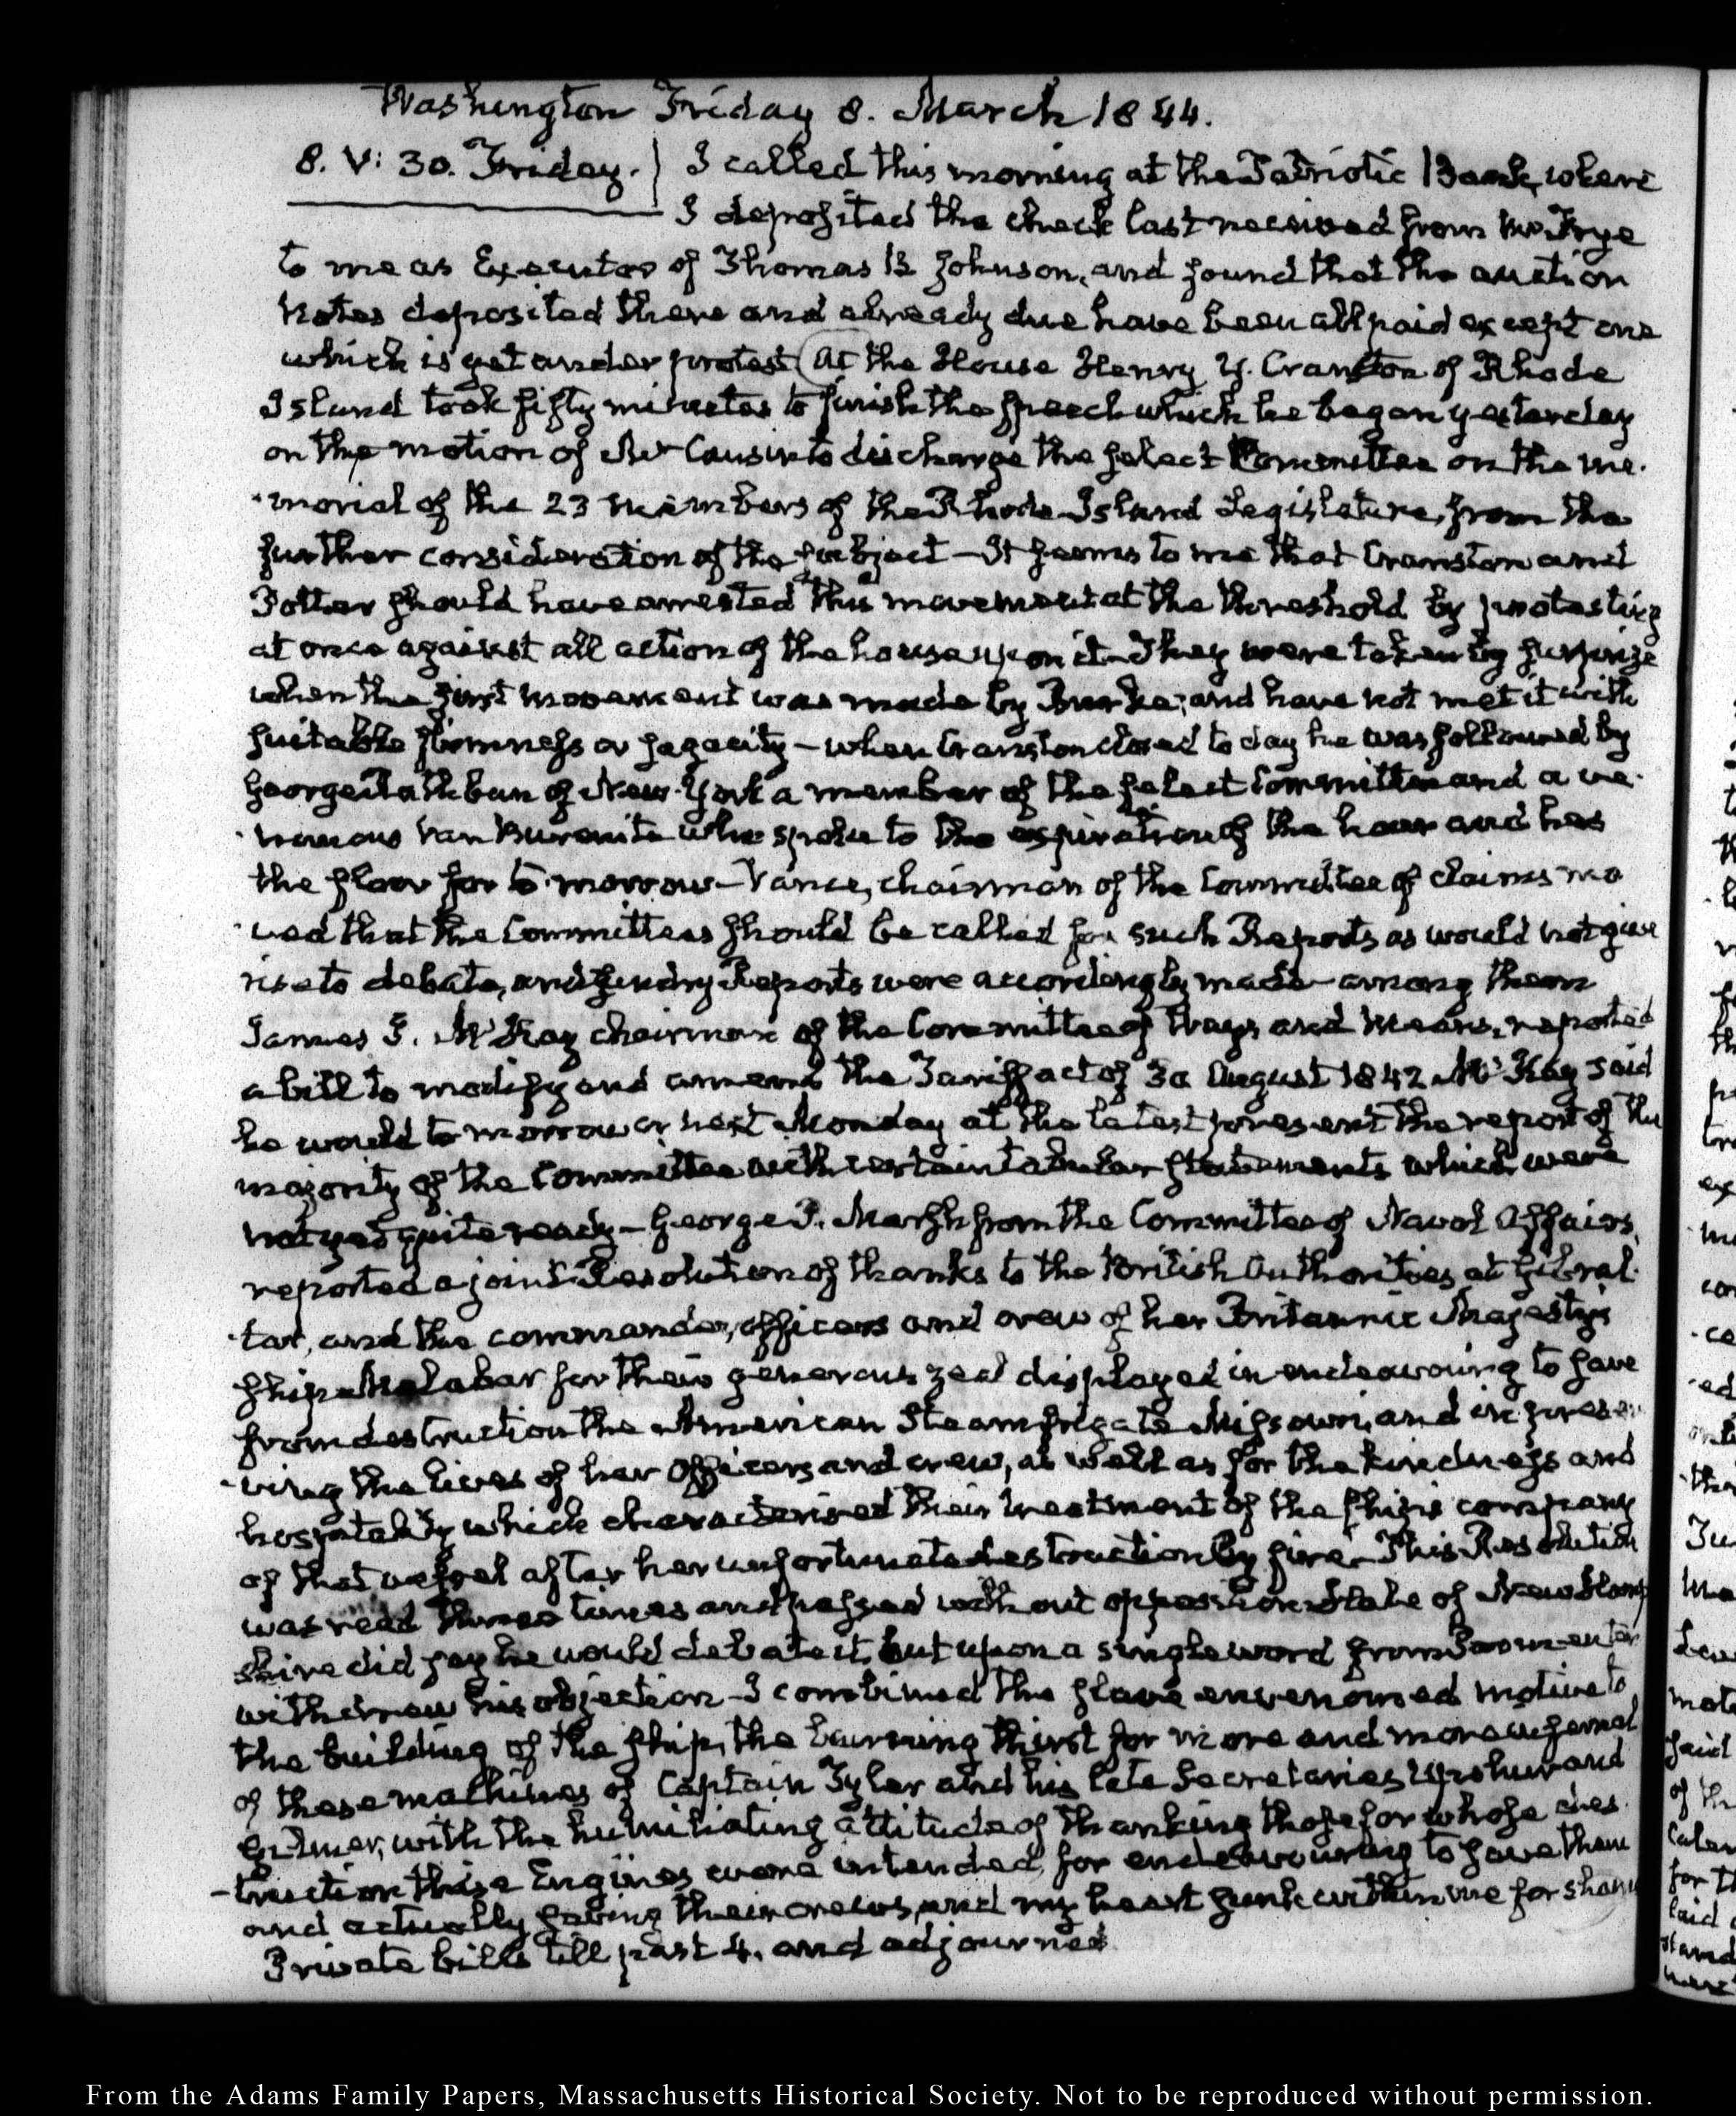 Washington Friday 8. March 1844.
8. V: 30. Friday. I called this morning at the Patriotic Bank, where
I deposited the check last received from Mr Frye
to me as Executor of Thomas B Johnson, and found that the auction
notes deposited there and already due have been all paid except one
which is yet under protest (At the House Henry Y. Cranston of Rhode
Island took fifty minutes to finish the speech which he began yesterday
on the motion of Mr Causin to discharge the select Committee on the me-
-morial of the 23 members of the Rhode-Island Legislature, from the
further consideration of the subject — It seems to me that Cranston and
Potter should have arrested this movement at the threshold by protesting
at once against all action of the house upon it — They were taken by surprize
when the first movement was made by Burke, and have not met it with
suitable firmness or sagacity — when Cranston closed to day he was followed by
George Rathbun of New-York a member of the select Committee and a ve-
-nomous Van Burenite who spoke to the expiration of the hour and has
the floor for to-morrow — Vance, chairman of the Committee of claims mo
-ved that the Committees should be called for such Reports as would not give
rise to debate, and sundry Reports were accordingly made — among them
James J. McKay chairman of the Committee of Ways and Means, reported
a bill to modify and amend the Tariff act of 30 August 1842 McKay said
he would to morrow or next Monday at the latest present the report of the
majority of the Committee with certain tabular statements which were
not yet quite ready — George P. Marsh from the Committee of Naval Affairs,
reported a joint Resolution of thanks to the British Authorities at Gibral-
-tar, and the commander, officers and crew of her Britannic Majesty's
ship Malabar for their generous zeal displayed in endeavouring to save
from destruction the American Steam frigate Missouri, and in preser-
-ving the lives of her Officers and crew, as well as for the kindness and
hospitality which characterised their treatment of the ship's company
of that vessel after her unfortunate destruction by fire. This Resolution
was read three times and passed without opposition. Hale of New Hamp
shire did say he would debate it, but upon a single word from
withdrew his objection — I combined the slave envenomed motive to
the building of the ship, the burning thirst for more and more infernal
of these machines of Captain Tyler and his late Secretaries Upshur and
Gilmer, with the humiliating attitude of thanking those for whose des-
-truction these Engines were intended, for endeavouring to save them
and actually saving their crews, and my heart sunk within me for shame
Private bills till past 4. and adjourned.
From the Adams Family Papers, Massachusetts Historical Society. Not to be reproduced without permission.